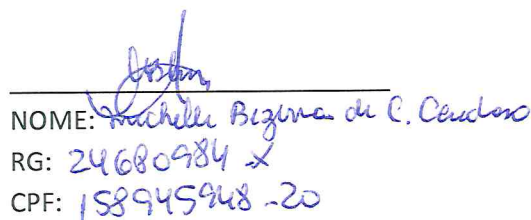 NOME: Michelle Bezerra de C. Cardoso
RG: 24680984-X
CPF: 158945948-20